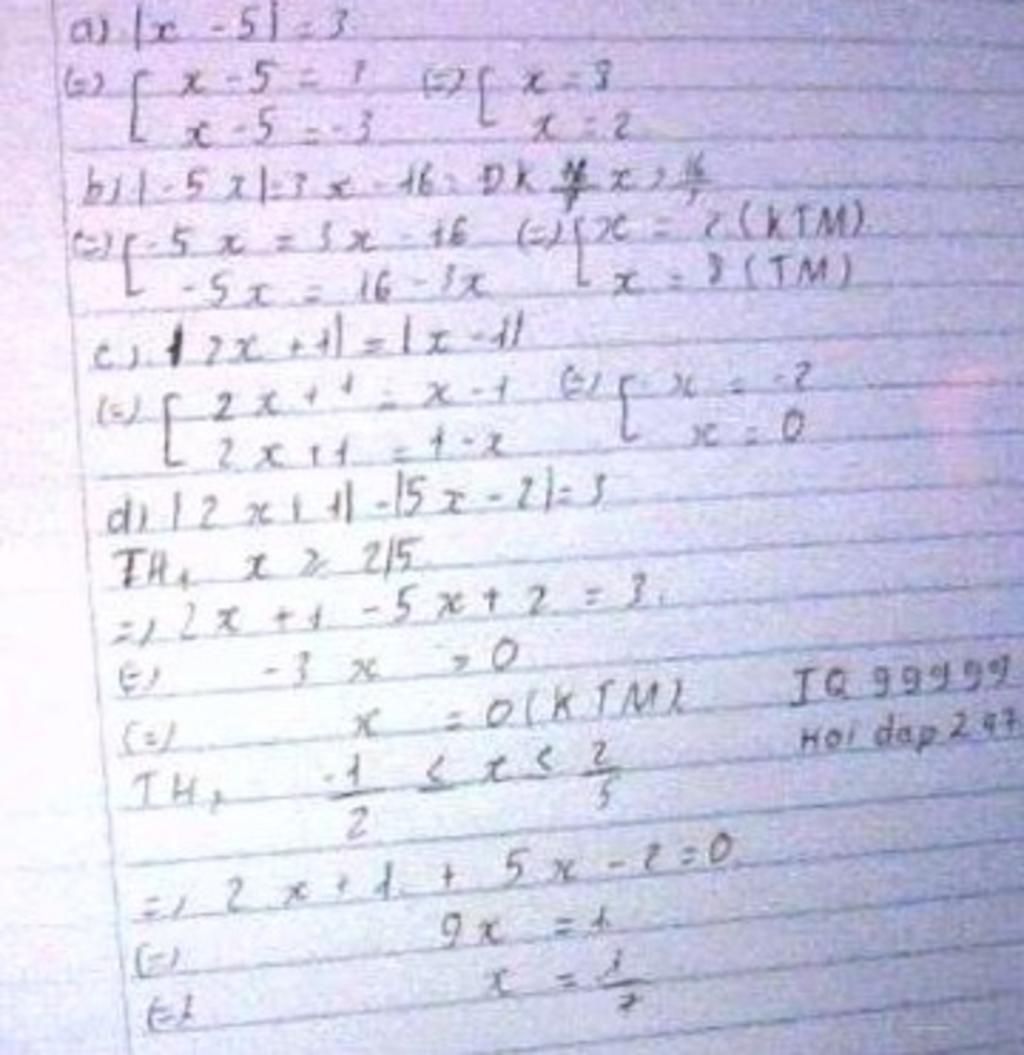 a) |x - 5| = 3
(=) [ x - 5 = 3 (=) [ x = 8
x - 5 = -3 x = 2
b) |-5x| = 3x - 16 ĐK x ≥ 16/3
(=) [ -5x = 3x - 16 (=) [ x = 2 (KTM)
-5x = 16 - 3x x = 8 (TM)
c) |2x + 1| = |x - 1|
(=) [ 2x + 1 = x - 1 (=) [ x = -2
2x + 1 = 1 - x x = 0
d) |2x + 1| - |5x - 2| = 3
TH1 x ≥ 2/5
=) 2x + 1 - 5x + 2 = 3
(=) -3x = 0
(=) x = 0 (KTM) IQ 99999
Hoi dap 247
TH2 -1/2 ≤ x < 2/5
=) 2x + 1 + 5x - 2 = 0
(=) 9x = 1
(=) x =